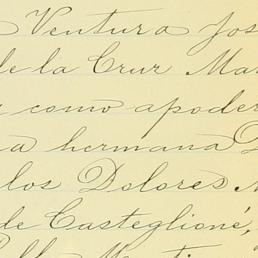 Ventura Jos
de la Cruz Mar
como apoder
a hermana D
los Dolores M
de Casteglioné,